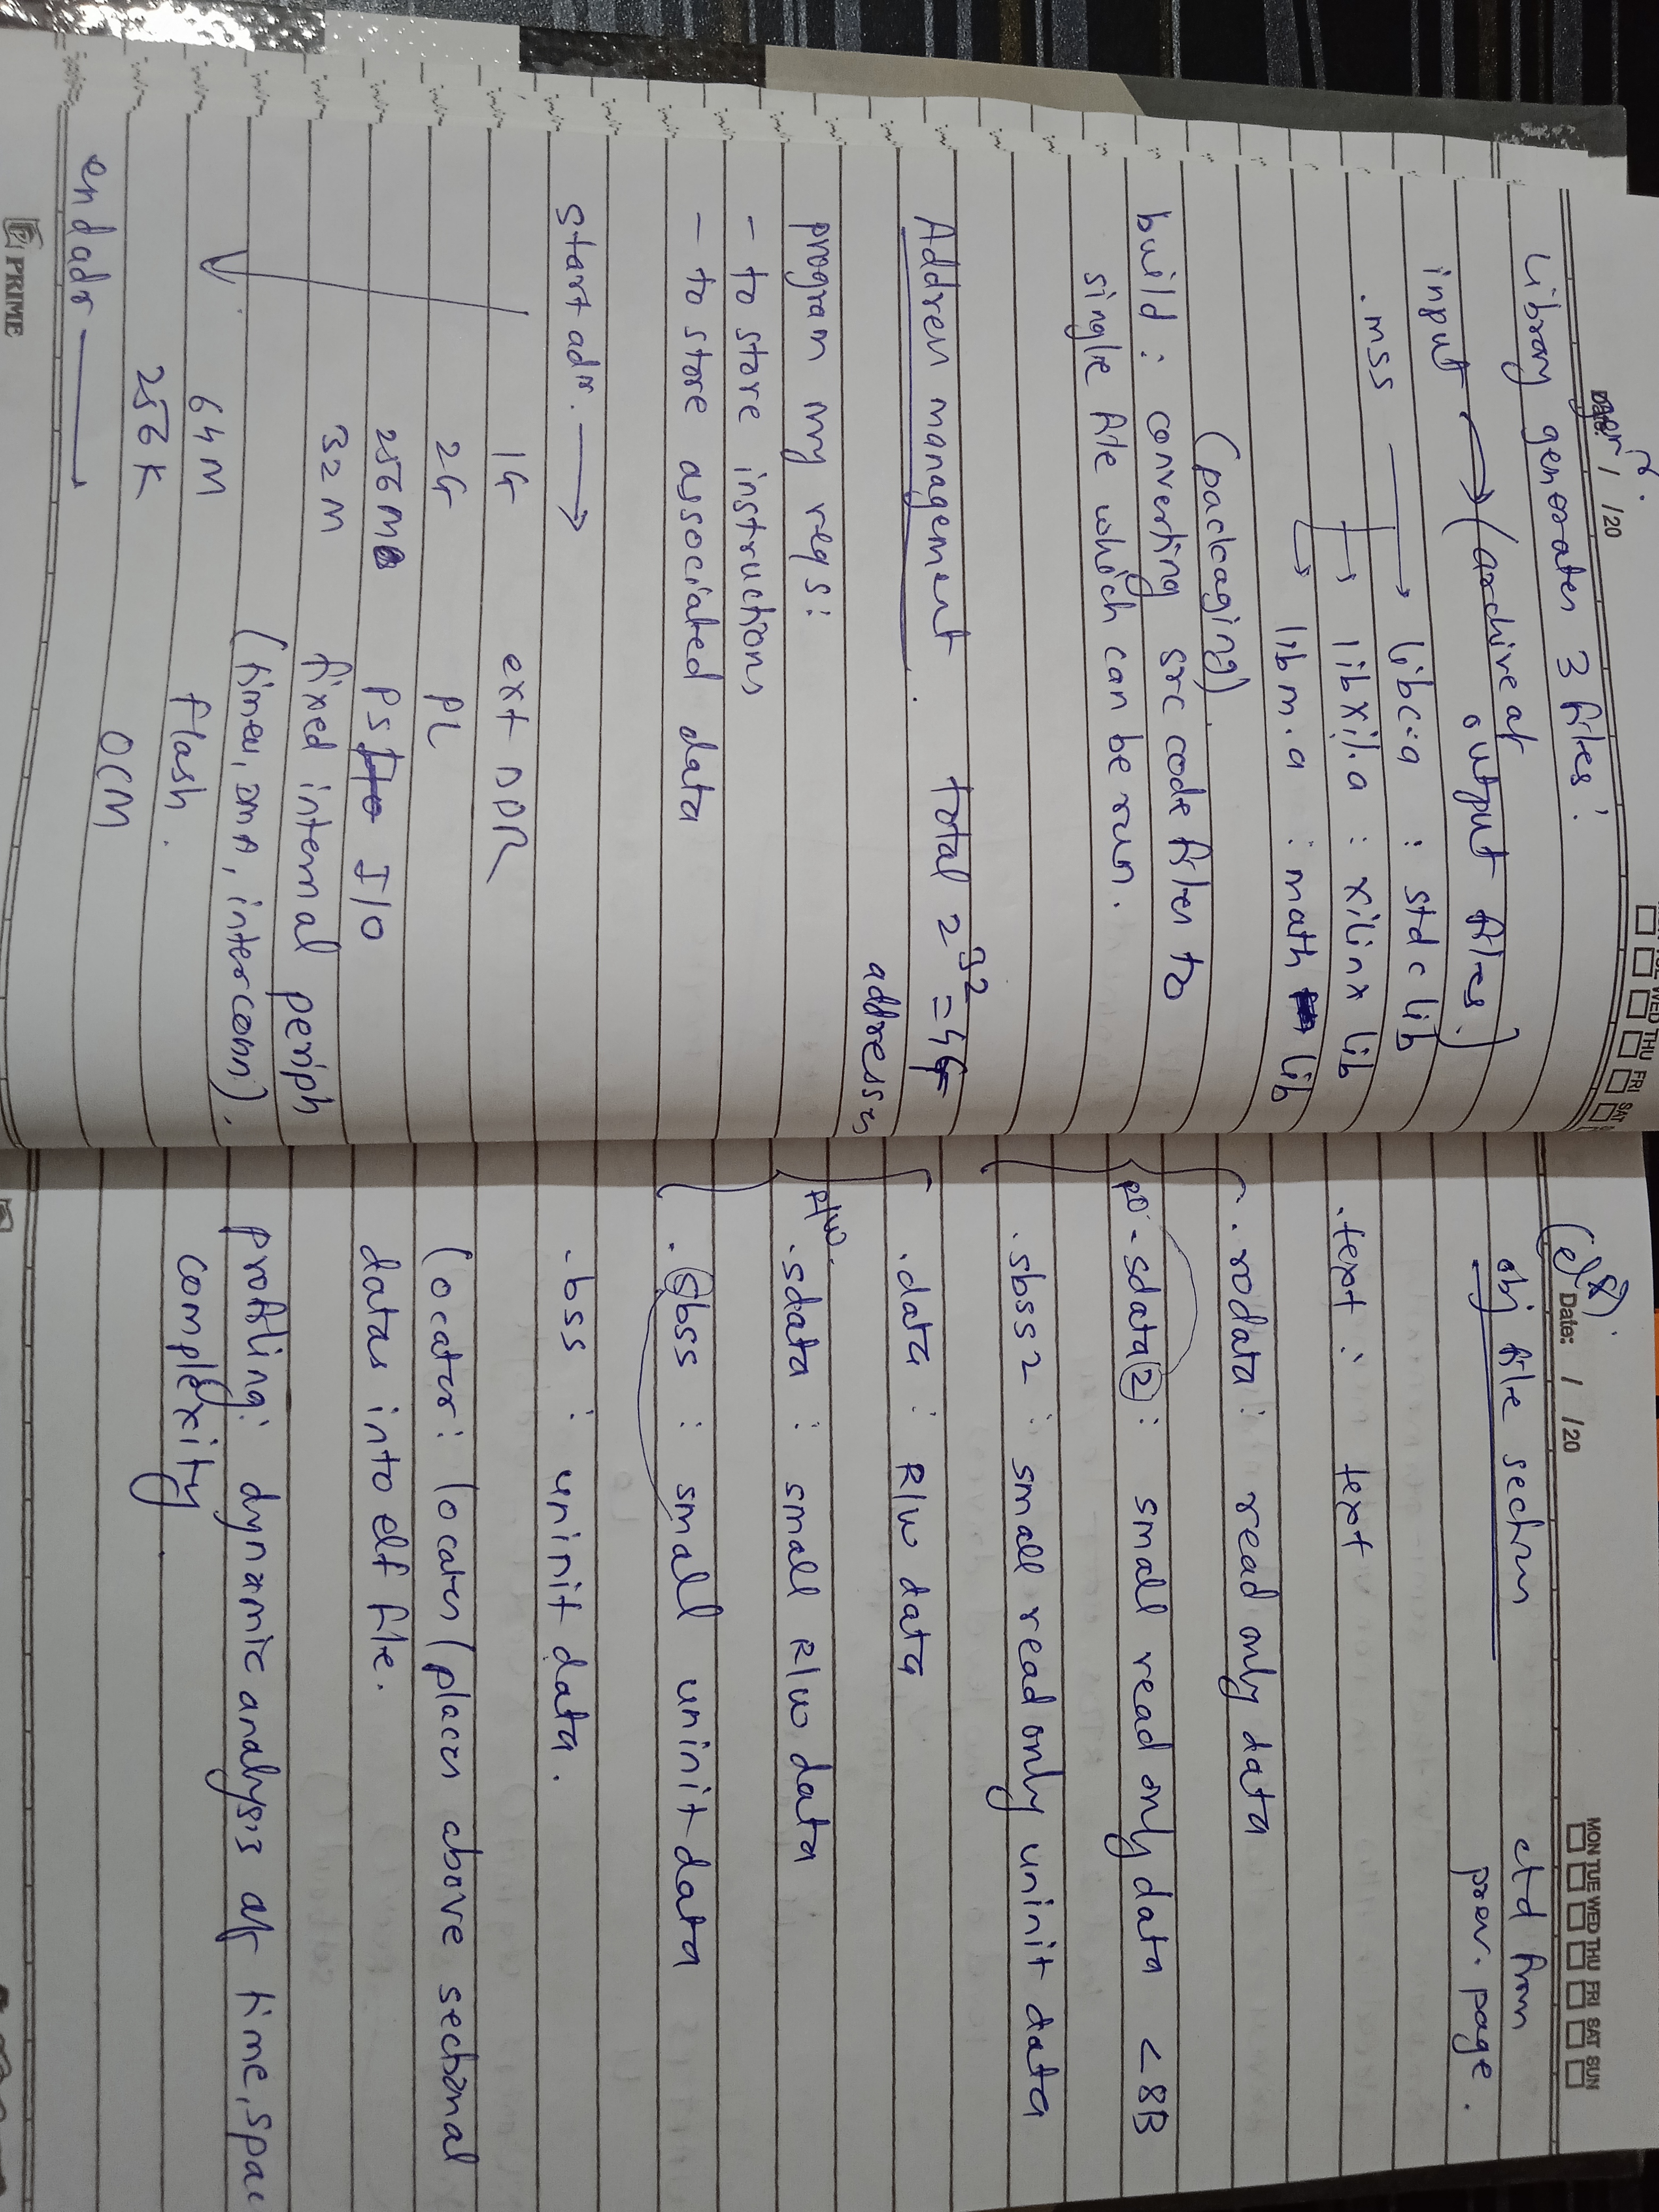 Date: / /20
Library generates 3 files:
input → (archive of output files)
.mss → libc.a : std c lib
→ libxil.a : xilinx lib
→ libm.a : math lib
(packaging)
build : converting src code files to
single file which can be run.
Address management. total 2^32 = 4G
addresses
program my reqs:
- to store instructions
- to store associated data
start adr. →
1G ext DDR
2G PL
256M PS I/O
32M fixed internal periph
(timer, DMA, interconn).
64M flash.
256K OCM
end adr →
PRIME
Date: / /20
MON TUE WED THU FRI SAT SUN
obj file sections
ctd from
prev. page.
.text : text
.rodata : read only data
RO .sdata2 : small read only data < 8B
.sbss2 : small read only uninit data
.data : R/W data
R/W .sdata : small R/W data
.sbss : small uninit data
.bss : uninit data.
locator: locates/places above sectional
datas into elf file.
profiling: dynamic analysis of time,
complexity